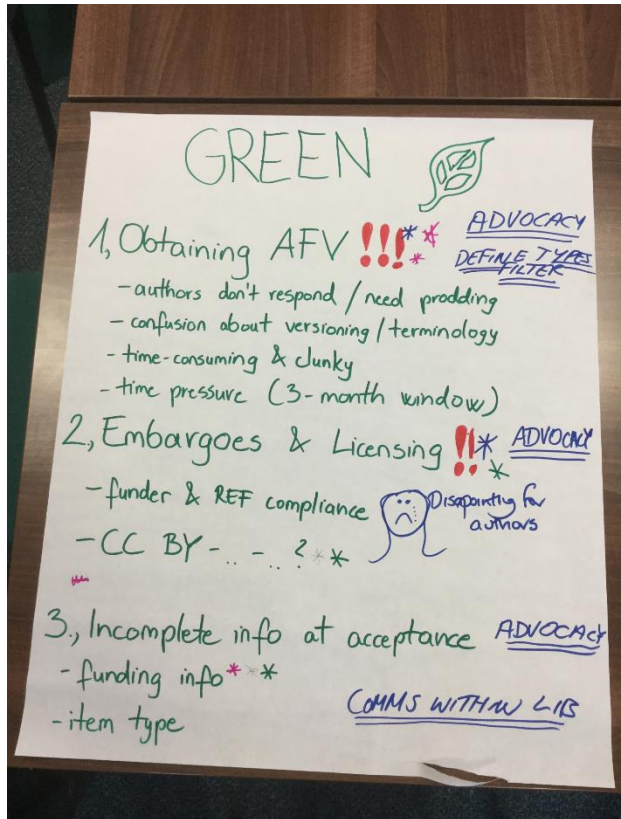 GREEN
1, Obtaining AFV !!! * * *
ADVOCACY
DEFINE TYPES
FILTER
- authors don't respond / need prodding
- confusion about versioning / terminology
- time-consuming & clunky
- time pressure (3-month window)
2, Embargoes & Licensing !! * *
ADVOCACY
- funder & REF compliance
Disapointing for
authors
- CC BY - .. - .. ? * *
3., Incomplete info at acceptance
ADVOCACY
- funding info * * *
- item type
COMMS WITHIN LIB